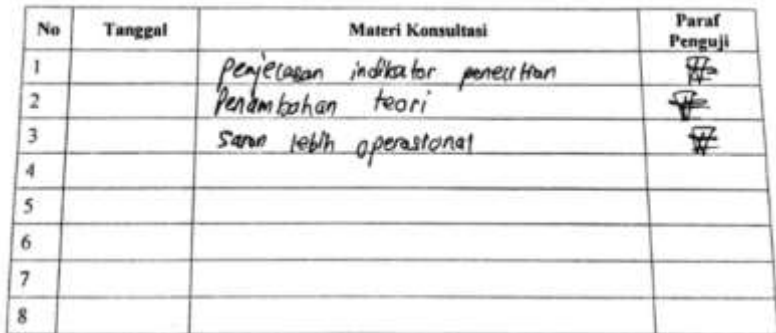 No Tanggal Materi Konsultasi Paraf Penguji
1 Penjelasan indikator penelitian
2 Penambahan teori
3 Saran lebih operasional
4
5
6
7
8